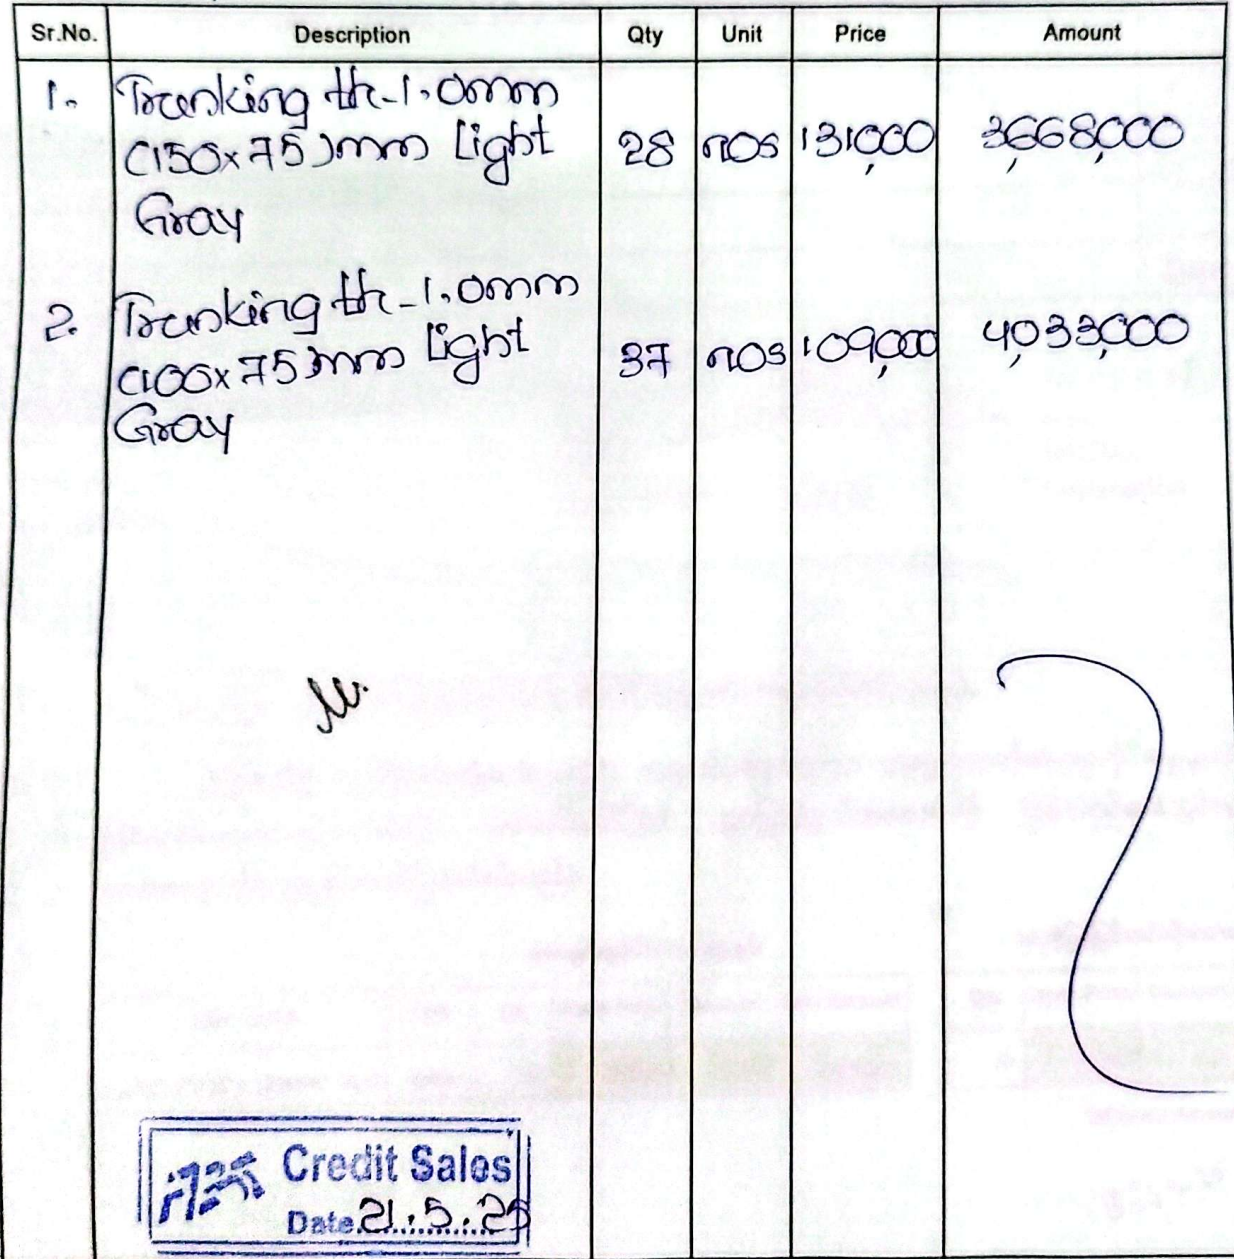 Sr.No. Description Qty Unit Price Amount
1. Trunking th-1.0mm
(150x75)mm Light 28 nos 131,000 3,668,000
Gray
2. Trunking th-1.0mm
(100x75)mm Light 37 nos 109,000 4,033,000
Gray
Credit Sales
Date 21.5.25